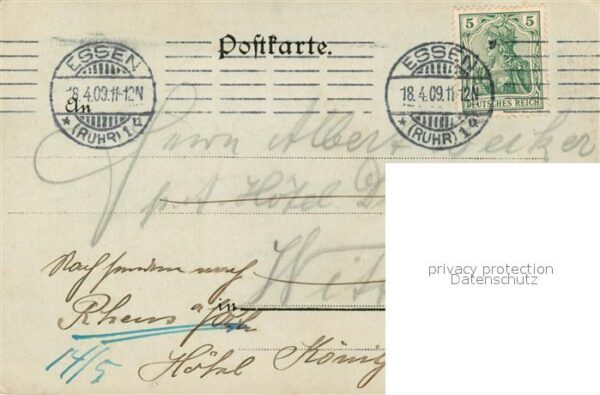 Postkarte.
ESSEN
18.4.09.11-12N
* (RUHR) 1q
ESSEN
18.4.09.11-12N
* (RUHR) 1q
5 5
DEUTSCHES REICH
An
Herrn Albert Becker
p. A. Hôtel
Witt
Nachsenden nach
in
Rhens a/Rh
14/5
Hôtel König
privacy protection
Datenschutz